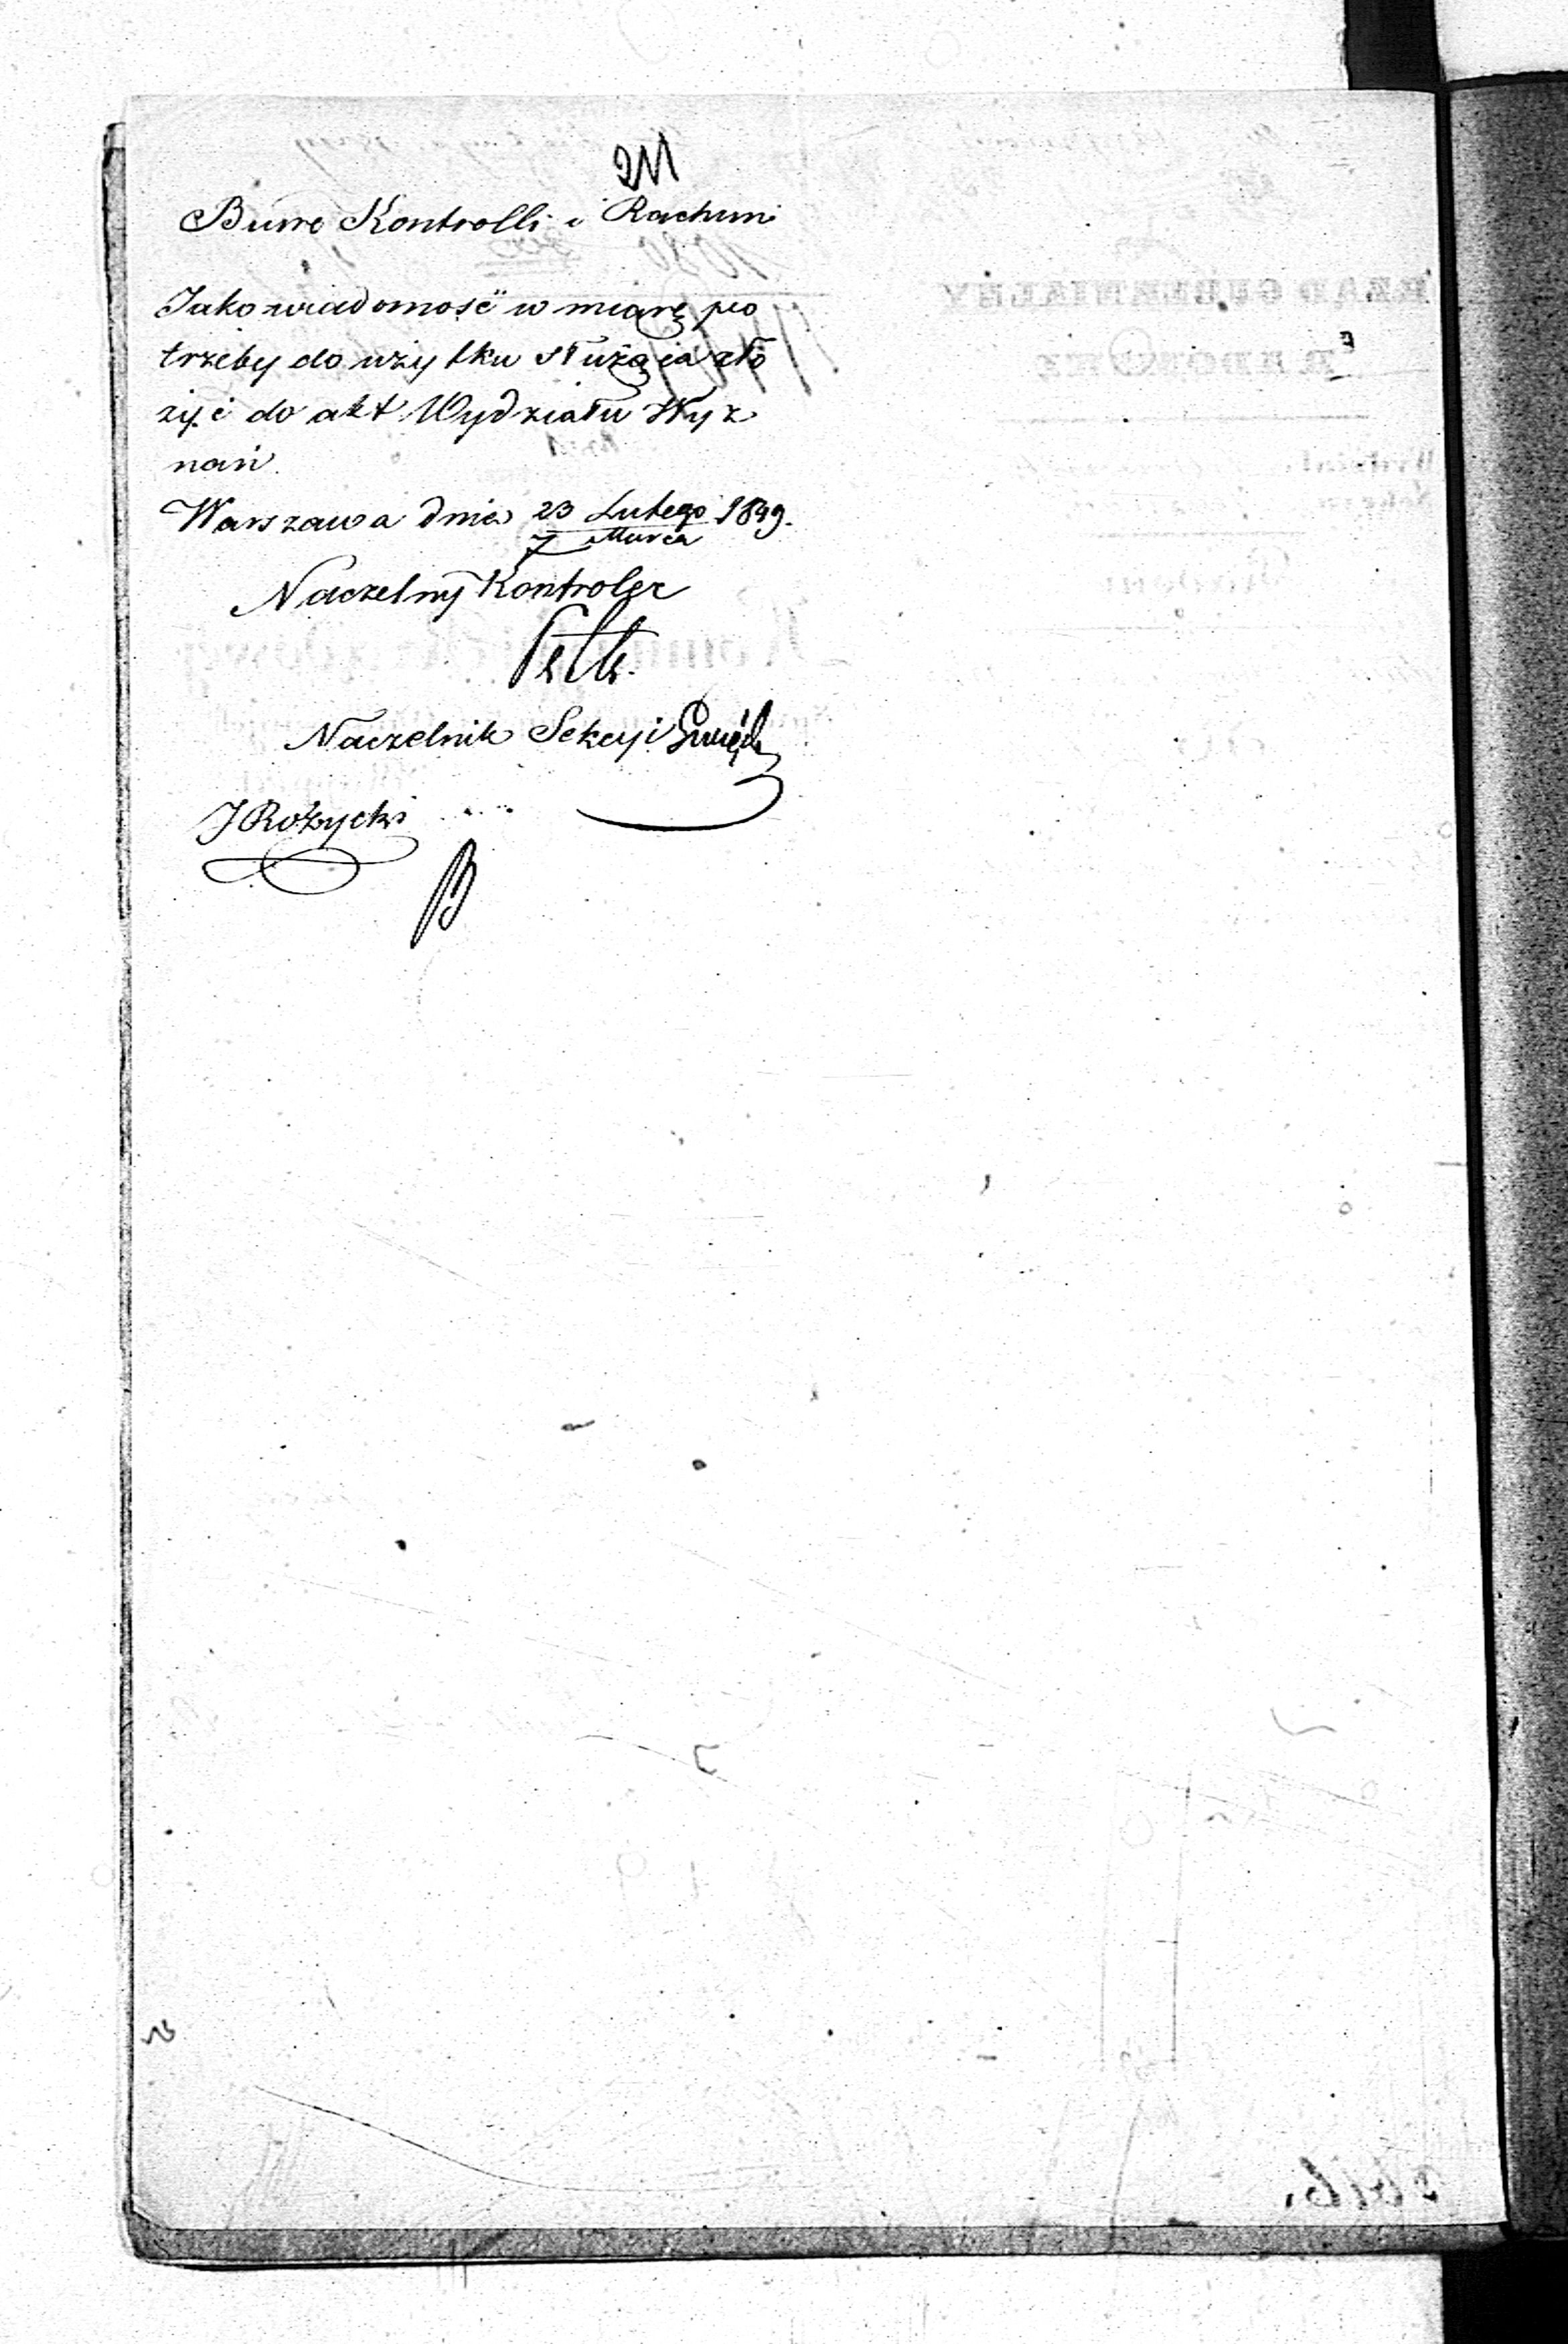 Buro Kontrolli i Rachuni
Jako wiadomość w miarę po
trzeby do użytku służąca zło
żyć do akt Wydziału Wyz
nań.
Warszawa dnia 23 Lutego 1849.
7 Marca
Naczelny Kontroler
Naczelnik Sekcyi
J Rożycki